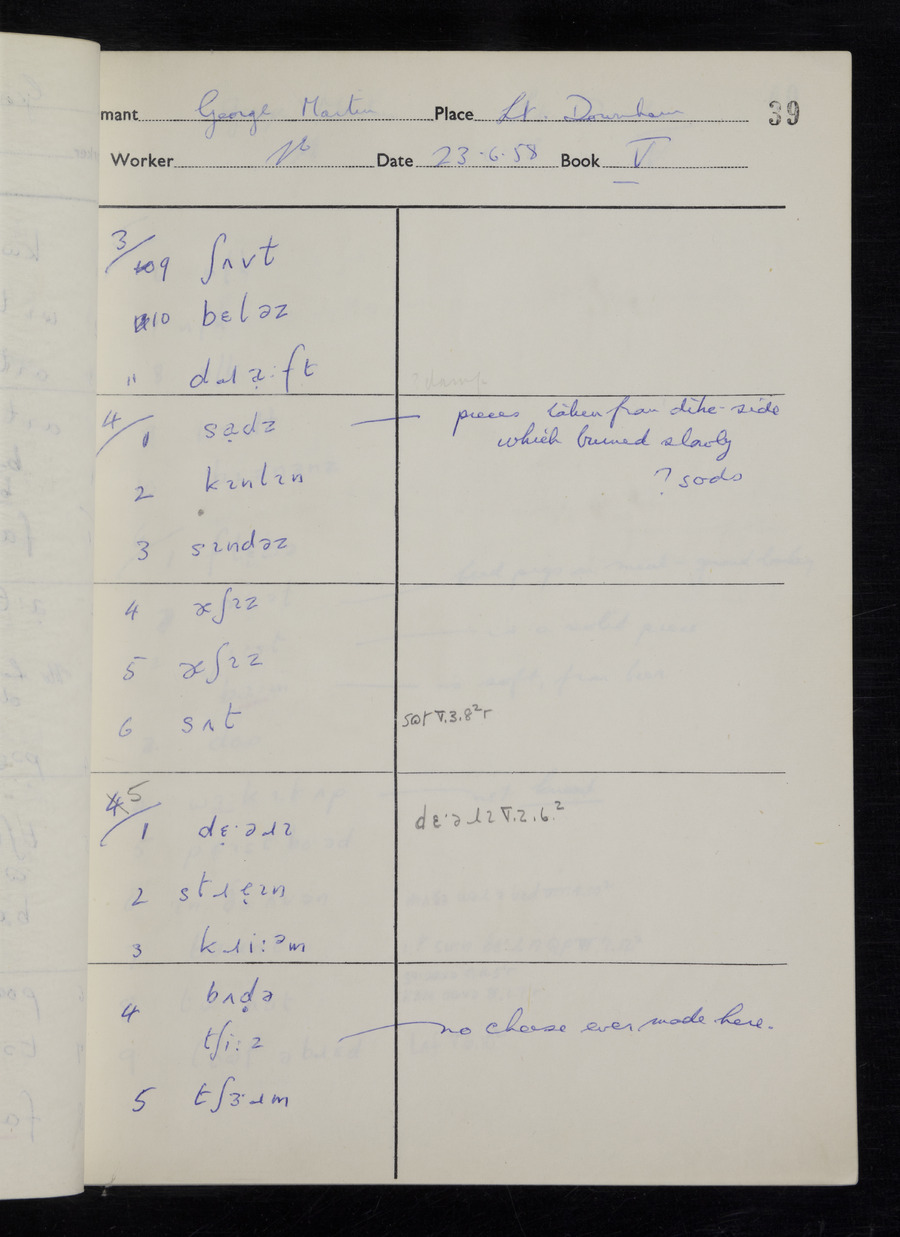 mant George Martin Place Lt. Downham 39
Worker Date 23.6.58 Book V
3/ 9 ʃʌvt
10 bɛləz
" dɹạːft ? damp
4/ 1 sạdz — pieces taken from dike-side
which burned slowly
? sods
2 kɪnlɪn
3 sɪndəz
4 æʃɪz
5 æʃɪz
6 sʌt sɷt V.3.8²r
5/ 1 dɛ̣ˑəɹɪ dɛˑəɹɪ V.2.6.²
2 stɹẹɪn
3 kɹiːᵊm
4 bʌḍə
tʃiːz — no cheese ever made here.
5 tʃɜˑɹm